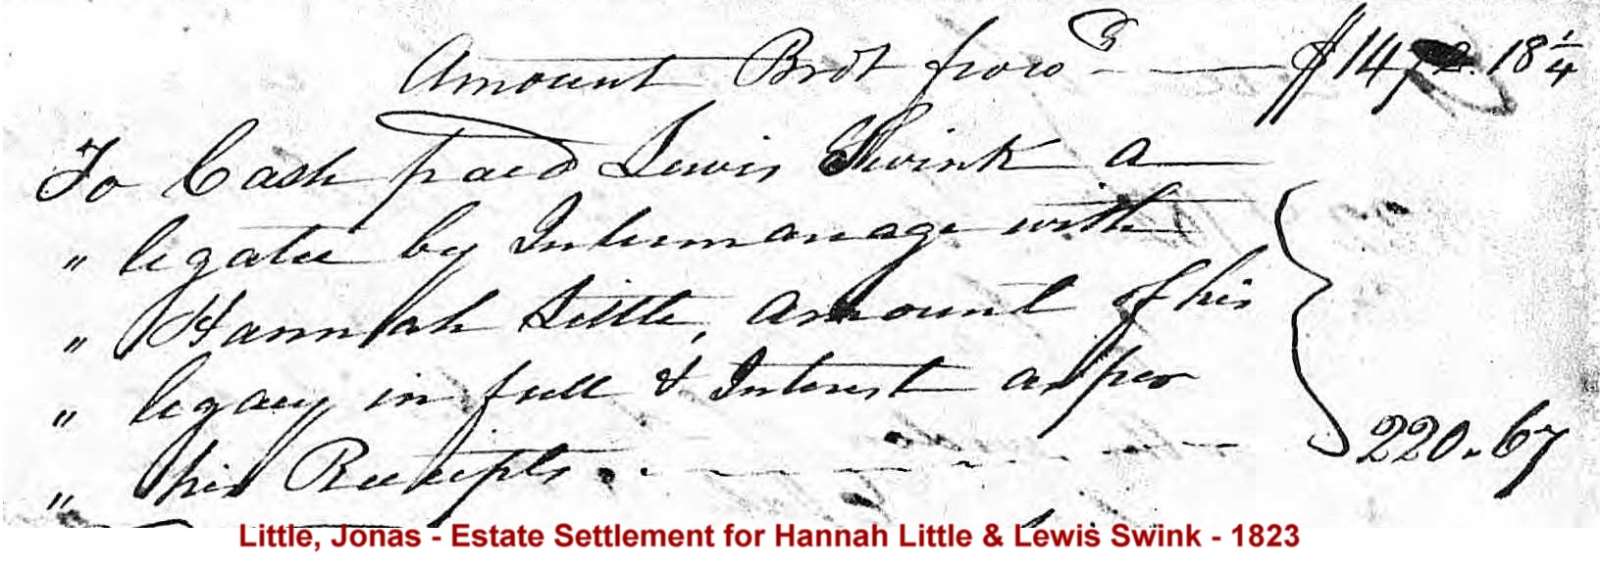 Amount Brot forwd - $14 18 1/4
To Cash paid Lewis Swink a
" legatee by Intermarage with
" Hannah Little, Amount of his
" legacy in full & Interest as per
" his Receipts - - - - - 220.67
Little, Jonas - Estate Settlement for Hannah Little & Lewis Swink - 1823